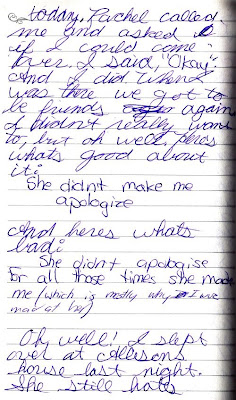 today, Rachel called
me and asked
if I could come
over. I said, "Okay".
And I did. When I
was there we got to
be friends again
I didn't really want
to, but oh well, heres
whats good about
it:
She didnt make me
apologize
And heres whats
bad:
She didnt apologise
for all those times she made
me (which is mostly why I was
mad at her)
Oh well! I slept
over at Allisons
house last night.
She still hates